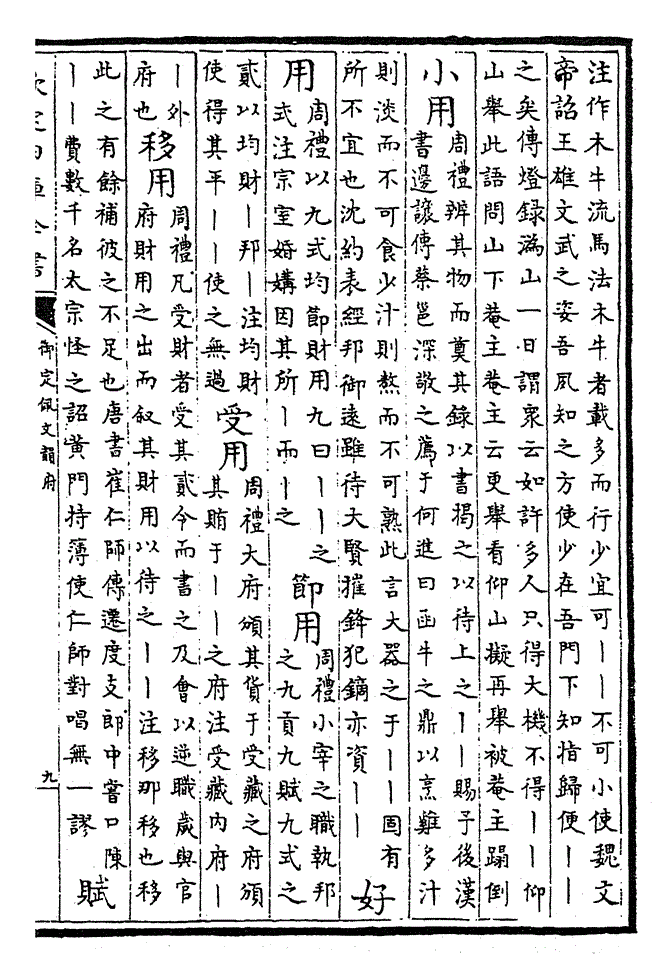 注作木牛流馬法木牛者載多而行少宜可丨丨不可小使魏文
帝詔王雄文武之姿吾夙知之方使少在吾門下知指歸便丨丨
之矣傳燈録溈山一日謂衆云如許多人只得大機不得丨丨仰
山舉此語問山下菴主菴主云更舉看仰山擬再舉被菴主蹋倒
小用
周禮辨其物而奠其録以書揭之以待上之丨丨賜予後漢
書邊讓傳蔡邕深敬之薦于何進曰函牛之鼎以烹雞多汁
則淡而不可食少汁則熬而不可熟此言大器之于丨丨固有
所不宜也沈約表經邦御遠雖待大賢摧鋒犯鏑亦資丨丨
好
用
周禮以九式均節財用九曰丨丨之
式注宗室婚媾因其所丨而丨之
節用
周禮小宰之職執邦
之九貢九賦九式之
貳以均財丨邦丨注均財
使得其平丨丨使之無過
受用
周禮大府頒其貨于受藏之府頒
其賄于丨丨之府注受藏内府丨
丨外
府也
移用
周禮凡受財者受其貳令而書之及會以逆職歲與官
府財用之出而叙其財用以待之丨丨注移那移也移
此之有餘補彼之不足也唐書崔仁師傳遷度支郎中嘗口陳
丨丨費數千名太宗怪之詔黄門持薄使仁師對唱無一謬
賦
欽定四庫全書
御定佩文韻府
九